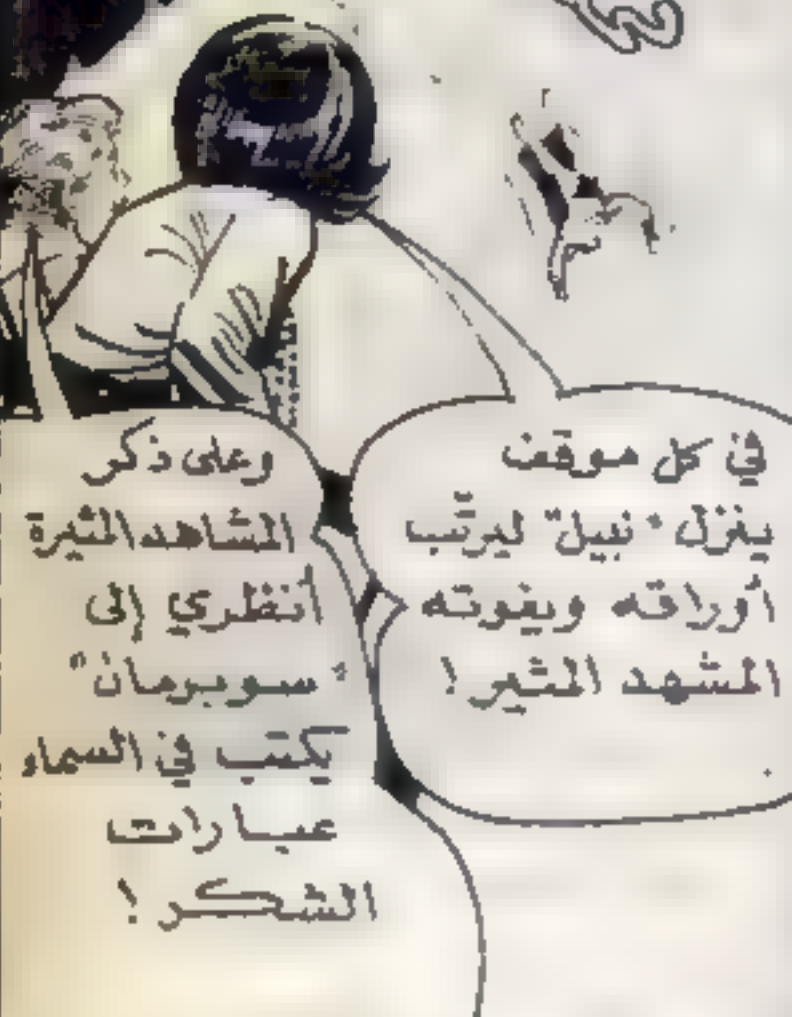 في كل موقف
ينزل "نبيل" ليرتّب
أوراقه ويفوته
المشهد المثير!
وعلى ذكر
المشاهد المثيرة
أنظري إلى
"سوبرمان"
يكتب في السماء
عبارات
الشكر!